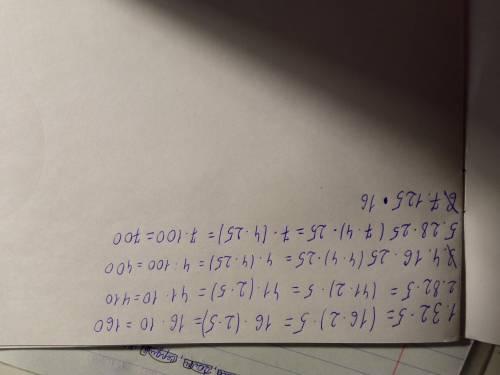 1. 32 · 5 = (16 · 2) · 5 = 16 · (2 · 5) = 16 · 10 = 160
2. 82 · 5 = (41 · 2) · 5 = 41 · (2 · 5) = 41 · 10 = 410
4. 16 · 25 (4 · 4) · 25 = 4 · (4 · 25) = 4 · 100 = 400
5. 28 · 25 (7 · 4) · 25 = 7 · (4 · 25) = 7 · 100 = 700
7. 125 · 16